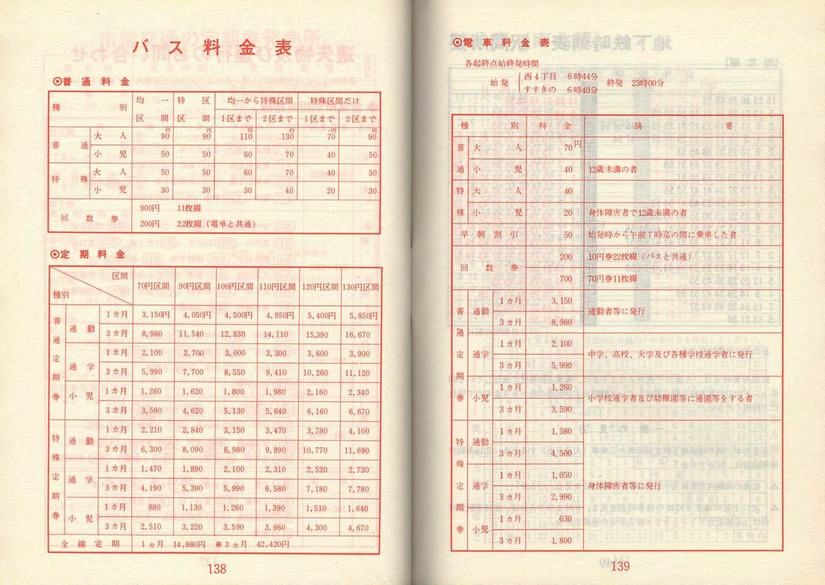 バス料金表
◎普通料金
種別 均一区間 特殊区間 均一から特殊区間 特殊区間だけ
1区まで 2区まで 1区まで 2区まで
普通 大人 90 90 110 130 70 90
小児 50 50 60 70 40 50
特殊 大人 50 50 60 70 40 50
小児 30 30 30 40 20 30
回数券 900円 11枚綴
200円 22枚綴（電車と共通）
◎定期料金
種別 区間 70円区間 90円区間 100円区間 110円区間 120円区間 130円区間
普通定期券 通勤 1カ月 3,150円 4,050円 4,500円 4,950円 5,400円 5,850円
3カ月 8,980 11,540 12,830 14,110 15,390 16,670
通学 1カ月 2,100 2,700 3,000 3,300 3,600 3,900
3カ月 5,990 7,700 8,550 9,410 10,260 11,120
小児 1カ月 1,260 1,620 1,800 1,980 2,160 2,340
3カ月 3,590 4,620 5,130 5,640 6,160 6,670
特殊定期券 通勤 1カ月 2,210 2,840 3,150 3,470 3,780 4,100
3カ月 6,300 8,090 8,980 9,890 10,770 11,690
通学 1カ月 1,470 1,890 2,100 2,310 2,520 2,730
3カ月 4,190 5,390 5,990 6,580 7,180 7,780
小児 1カ月 880 1,130 1,260 1,390 1,510 1,640
3カ月 2,510 3,220 3,590 3,960 4,300 4,670
全線定期 1カ月 14,880円 ※3カ月 42,420円
138
◎電車料金表
各起終点始終発時間
始発 西4丁目 6時44分 終発 23時00分
すすきの 6時40分
種別 料金 摘要
普通 大人 70円
小児 40 12歳未満の者
特殊 大人 40
小児 20 身体障害者で12歳未満の者
早朝割引 50 始発時から午前7時迄の間に乗車した者
回数券 200 10円券22枚綴（バスと共通）
700 70円券11枚綴
普通定期券 通勤 1カ月 3,150 通勤者等に発行
3カ月 8,980
通学 1カ月 2,100 中学、高校、大学及び各種学校通学者に発行
3カ月 5,990
小児 1カ月 1,260 小学校通学者及び幼稚園等に通園等をする者
3カ月 3,590
特殊定期券 通勤 1カ月 1,580 身体障害者等に発行
3カ月 4,500
通学 1カ月 1,050
3カ月 2,990
小児 1カ月 630
3カ月 1,800
139